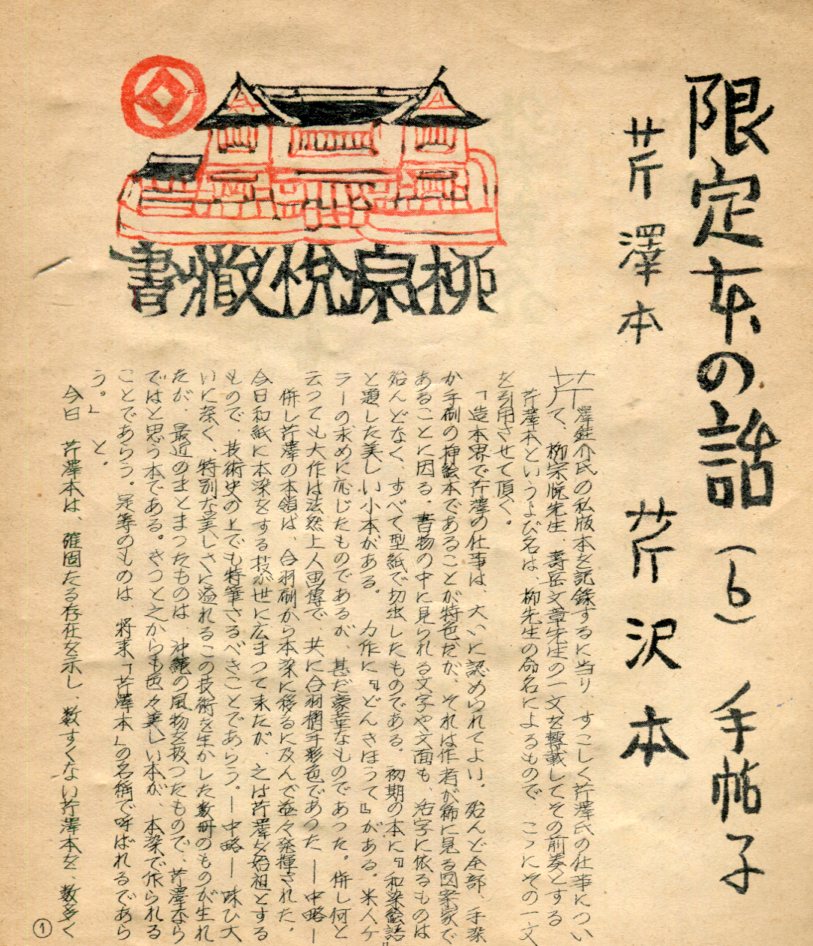 限定本の話（6）　手帖子
芹澤本　芹沢本
柳宗悦蔵書
芹澤銈介氏の私版本を記録するに当り、すこしく芹澤氏の仕事につい
て、柳宗悦先生、壽岳文章先生の一文を轉載してその前奏とする
芹澤本というよび名は、柳先生の命名によるもので、こゝにその一文
を引用させて頂く。
「造本界で芹澤の仕事は、大いに認められてよい。殆んど全部、手染
か手刷の挿絵本であることが特色だが、それは作者が稀に見る図案家で
あることに因る。書物の中に見られる文字や文面も、活字に依るものは
殆んどなく、すべて型紙で切出したものである。初期の本に『和染絵語』
と題した美しい小本がある。力作に『どんきほうて』がある。米人ケ
ラーの求めに応じたものであるが、甚だ豪華なものであつた。併し何と
云つても大作は法然上人画傳で、共に合羽摺手彩色であつた　―中略―
併し芹澤の本領は、合羽刷から本染に移るに及んで益々発揮された。
今日和紙に本染をする技が世に広まつて来たが、之は芹澤を始祖とする
もので、技術史の上でも特筆さるべきことであらう。―中略―　味ひ大
いに深く、特別な美しさに溢れるこの技術を生かした数冊のものが生れ
たが、最近のまとまつたものは、沖縄の風物を扱つたもので、芹澤なら
ではと思う本である。きつと之からも色々美しい本が、本染で作られる
ことであらう。是等のものは、将来「芹澤本」の名稱で呼ばれるであら
う。」　と。
今日　芹澤本は、確固たる存在を示し、数すくない芹澤本を、数多く
①